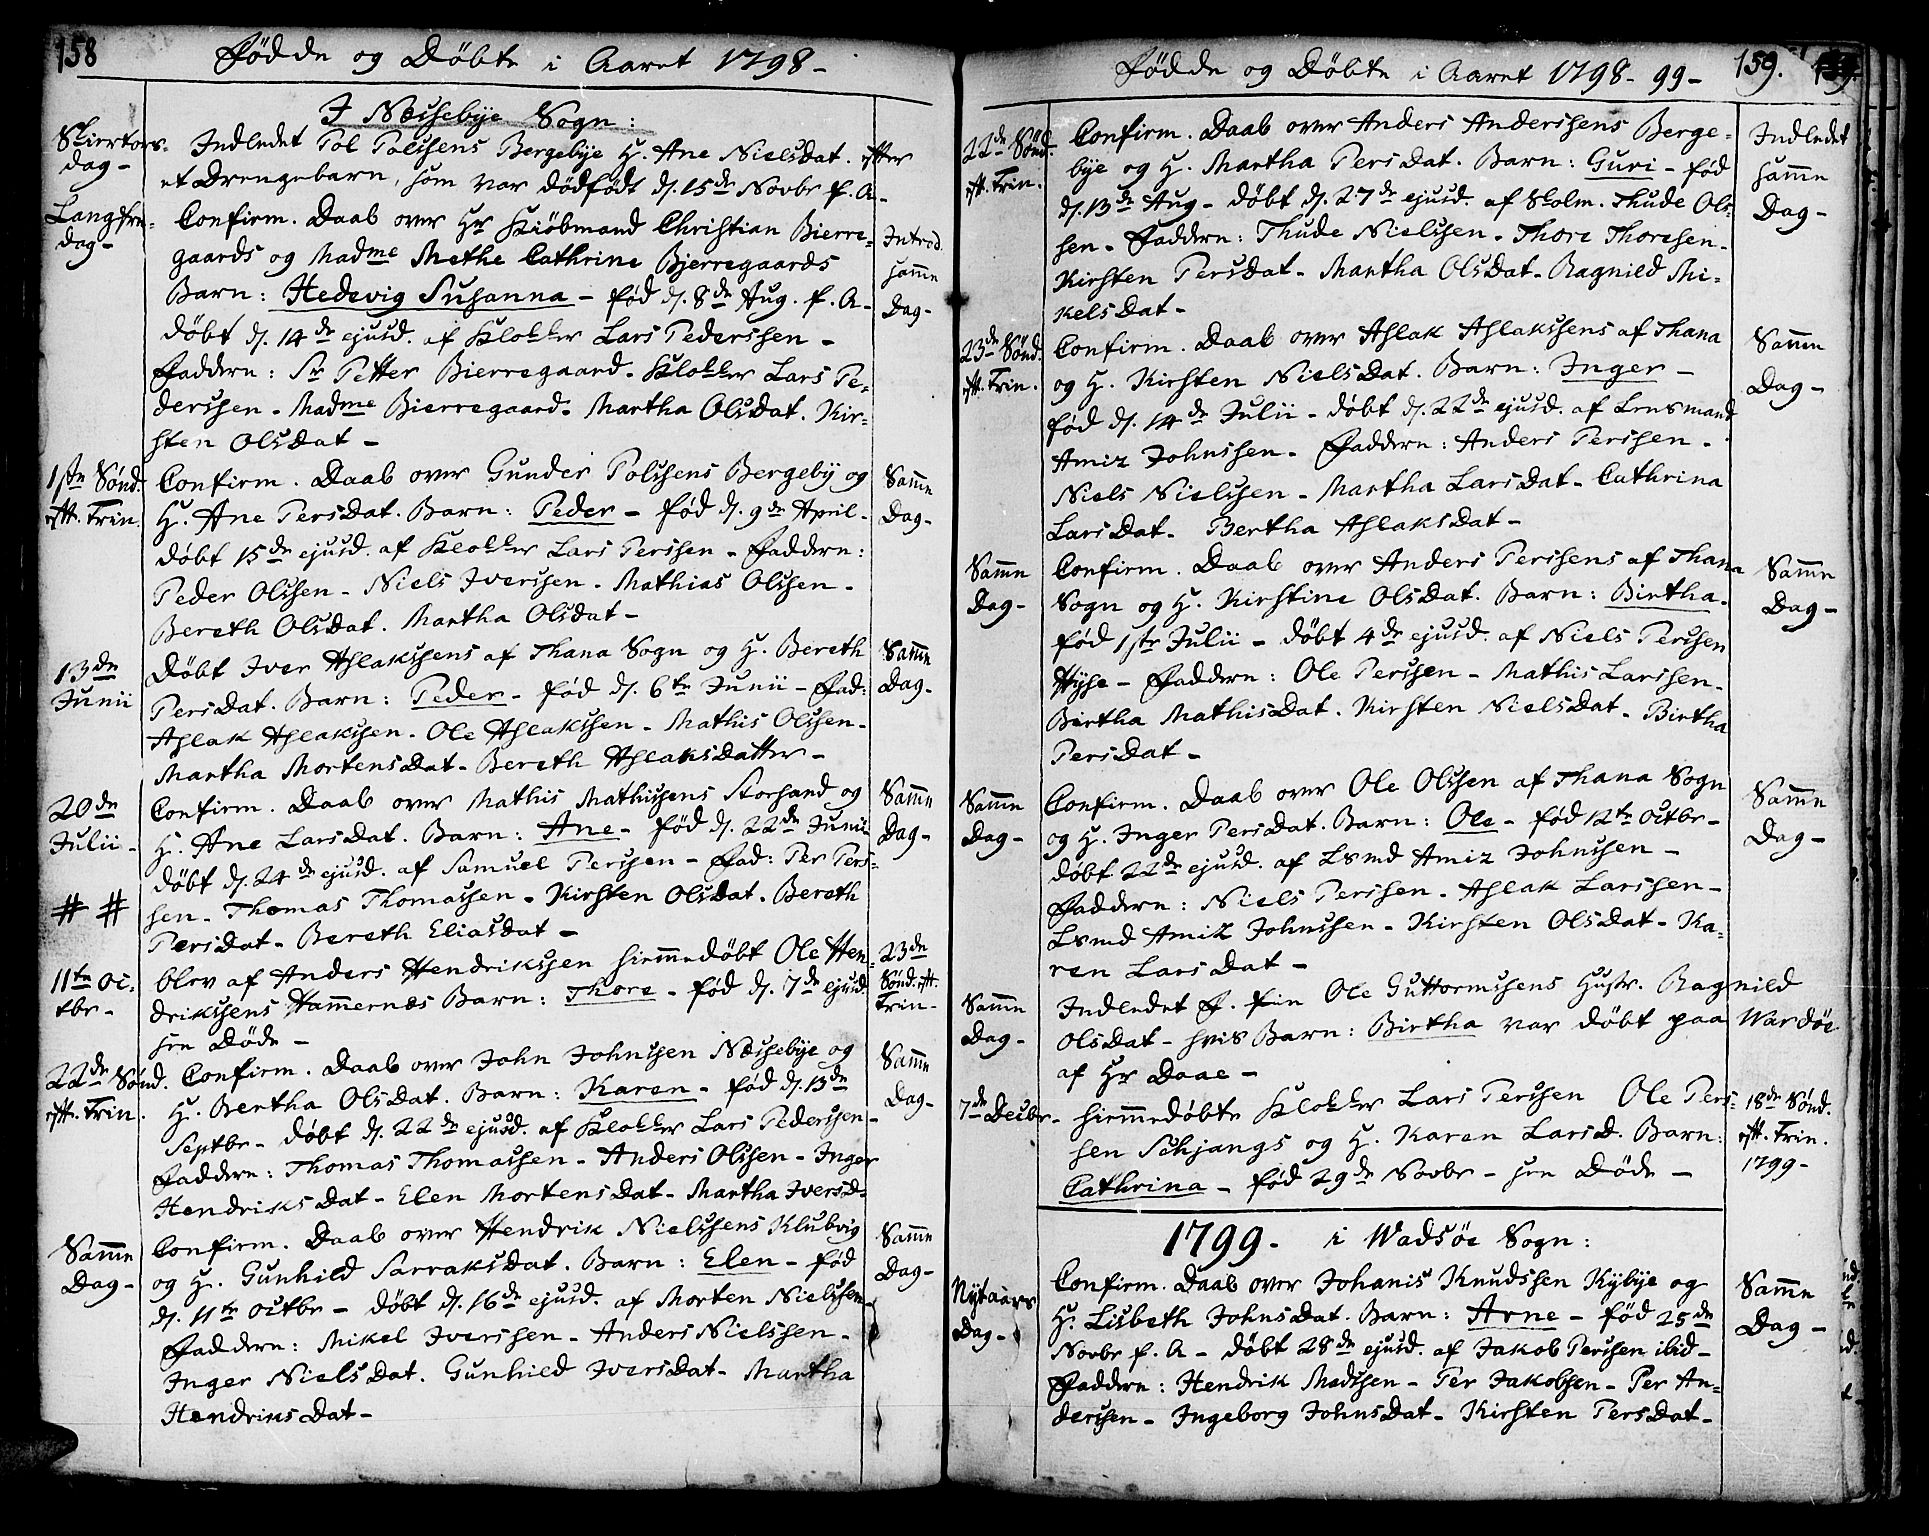 158
Fødde og Døbte i Aaret 1798-
I Næssebÿe Sogn:
Skiertors-
dag-
Indledet Pol Polssens Bergebÿe H. Ane NielsDat. efter
et Drengebarn, som var dødfødt d. 15de Novbr f. A-
Langfre-
dag-
Confirm. Daab over Hr Kiöbmand Christian Bierre-
gaards og Madme Methe Cathrine Bjerregaards
Barn: Hedevig Susanna - fød d. 8de Aug. f. A-
døbt d. 14de ejusd. af Klokker Lars Pederssen -
Faddern: Sr Petter Bierregaard. Klokker Lars Pe-
derssen - Madme Bierregaard. Martha OlsDat. Kir-
sten OlsDat -
Introd.
samme
Dag-
1ste Sønd.
eft. Trin.
Confirm. Daab over Gunder Polssens Bergebÿ og
H. Ane PersDat. Barn: Peder - fød d. 9de April-
døbt 15de ejusd. af Klokker Lars Perssen - Faddern:
Peder Olssen - Niels Iverssen - Mathias Olssen -
Bereth OlsDat. Martha OlsDat -
Samme
Dag-
13de
Junii
Døbt Iver Aslakssens af Thana Sogn og H. Bereth
PersDat. Barn: Peder - fød d. 6te Junii - Fad:
Aslak Aslakssen - Ole Aslakssen - Mathis Olssen -
Martha MortensDat - Bereth AslaksDatter -
Samme
Dag-
20de
Julii-
# #
Confirm. Daab over Mathis Mathissens Storsand og
H. Ane LarsDat. Barn: Ane - fød d. 22de Junii
døbt d. 24de ejusd. af Samuel Perssen - Fad: Per Pers-
sen - Thomas Thomassen - Kirsten OlsDat. Bereth
PersDat - Bereth EliasDat -
Samme
Dag-
11te Oc-
tbr-
blev af Anders Hendrikssen hiemmedøbt Ole Hen-
drikssens Hammernæs Barn: Thore - fød d. 7de ejusd.
hen Døde -
23de
Sønd. eft.
Trin-
22de Sønd.
eft. Trin.
Confirm. Daab over John Johnssen Næssebÿe og
H. Bertha OlsDat. Barn: Karen - fød d. 13de
Septbr - døbt d. 22de ejusd. af Klokker Lars Pederssen -
Faddern: Thomas Thomassen - Anders Olssen - Inger
HendriksDat - Elen MortensDat - Martha IversD-
Samme
Dag-
Samme
Dag-
Confirm. Daab over Hendrik Nielssens Klubvig
og H. Gunhild SarraksDat. Barn: Elen - fød
d. 11te Octbr - døbt d. 16de ejusd. af Morten Nielssen -
Faddern: Mikel Iverssen - Anders Nielssen -
Inger NielsDat. Gunhild IversDat - Martha
HendriksDat -
Samme
Dag-
Fødde og Døbte i Aaret 1798-99- 159.
22de Sønd.
eft. Trin.
Confirm. Daab over Anders Anderssens Berge-
bÿe og H. Martha PersDat. Barn: Guri - fød
d. 13de Aug - døbt d. 27de ejusd. af Skolm. Thude Ols-
sen - Faddern: Thude Nielssen - Thore Thoresen -
Kirsten PersDat - Martha OlsDat - Ragnild Mi-
kelsDat -
Indledet
samme
Dag-
23de Sønd.
eft. Trin.
Confirm. Daab over Aslak Aslakssens af Thana
og H. Kirsten NielsDat. Barn: Inger -
fød d. 14de Julii - døbt d. 22de ejusd. af Lensmand
Amiz Johnssen - Faddern: Anders Perssen -
Niels Nielssen - Martha LarsDat - Cathrina
LarsDat - Bertha AslaksDat -
Samme
Dag-
Samme
Dag-
Confirm. Daab over Anders Perssens af Thana
Sogn og H. Kirstine OlsDat. Barn: Birtha.
fød 1ste Julii - døbt 4de ejusd. af Niels Perssen
Hÿse - Faddern: Ole Perssen - Mathis Larssen -
Birtha MathisDat. Kirsten NielsDat - Birtha
PersDat -
Samme
Dag-
Samme
Dag-
Confirm. Daab over Ole Olssen af Thana Sogn
og H. Inger PersDat. Barn: Ole - fød 12te Octbr -
døbt 22de ejusd. af Lsmd Amiz Johnssen -
Faddern: Niels Perssen - Aslak Larssen -
Lsmd Amiz Johnssen - Kirsten OlsDat - Ka-
ren LarsDat -
Samme
Dag-
Samme
Dag-
Indledet F. fin Ole Guttormssens Hustr. Ragnild
OlsDat - hvis Barn: Birtha var døbt paa Wardöe
af Hr Daae -
7de Decbr-
hiemmedøbte Klokker Lars Perssen Ole Pers-
sen Schjangs og H. Karen LarsD. Barn:
Cathrina - fød 29de Novbr - hen Døde -
18de Sønd.
eft. Trin.
1799-
1799- i Wadsöe Sogn:
Nytaars
Dag-
Confirm. Daab over Johanis Knudssen Kÿbÿe og
H. Lisbeth JohnsDat. Barn: Arne - fød 25de
Novbr f. A - døbt 28de ejusd. af Jakob Perssen ibid-
Faddern: Hendrik Madssen - Per Jakobsen - Per An-
derssen - Ingeborg JohnsDat - Kirsten PersDat -
Samme
Dag-